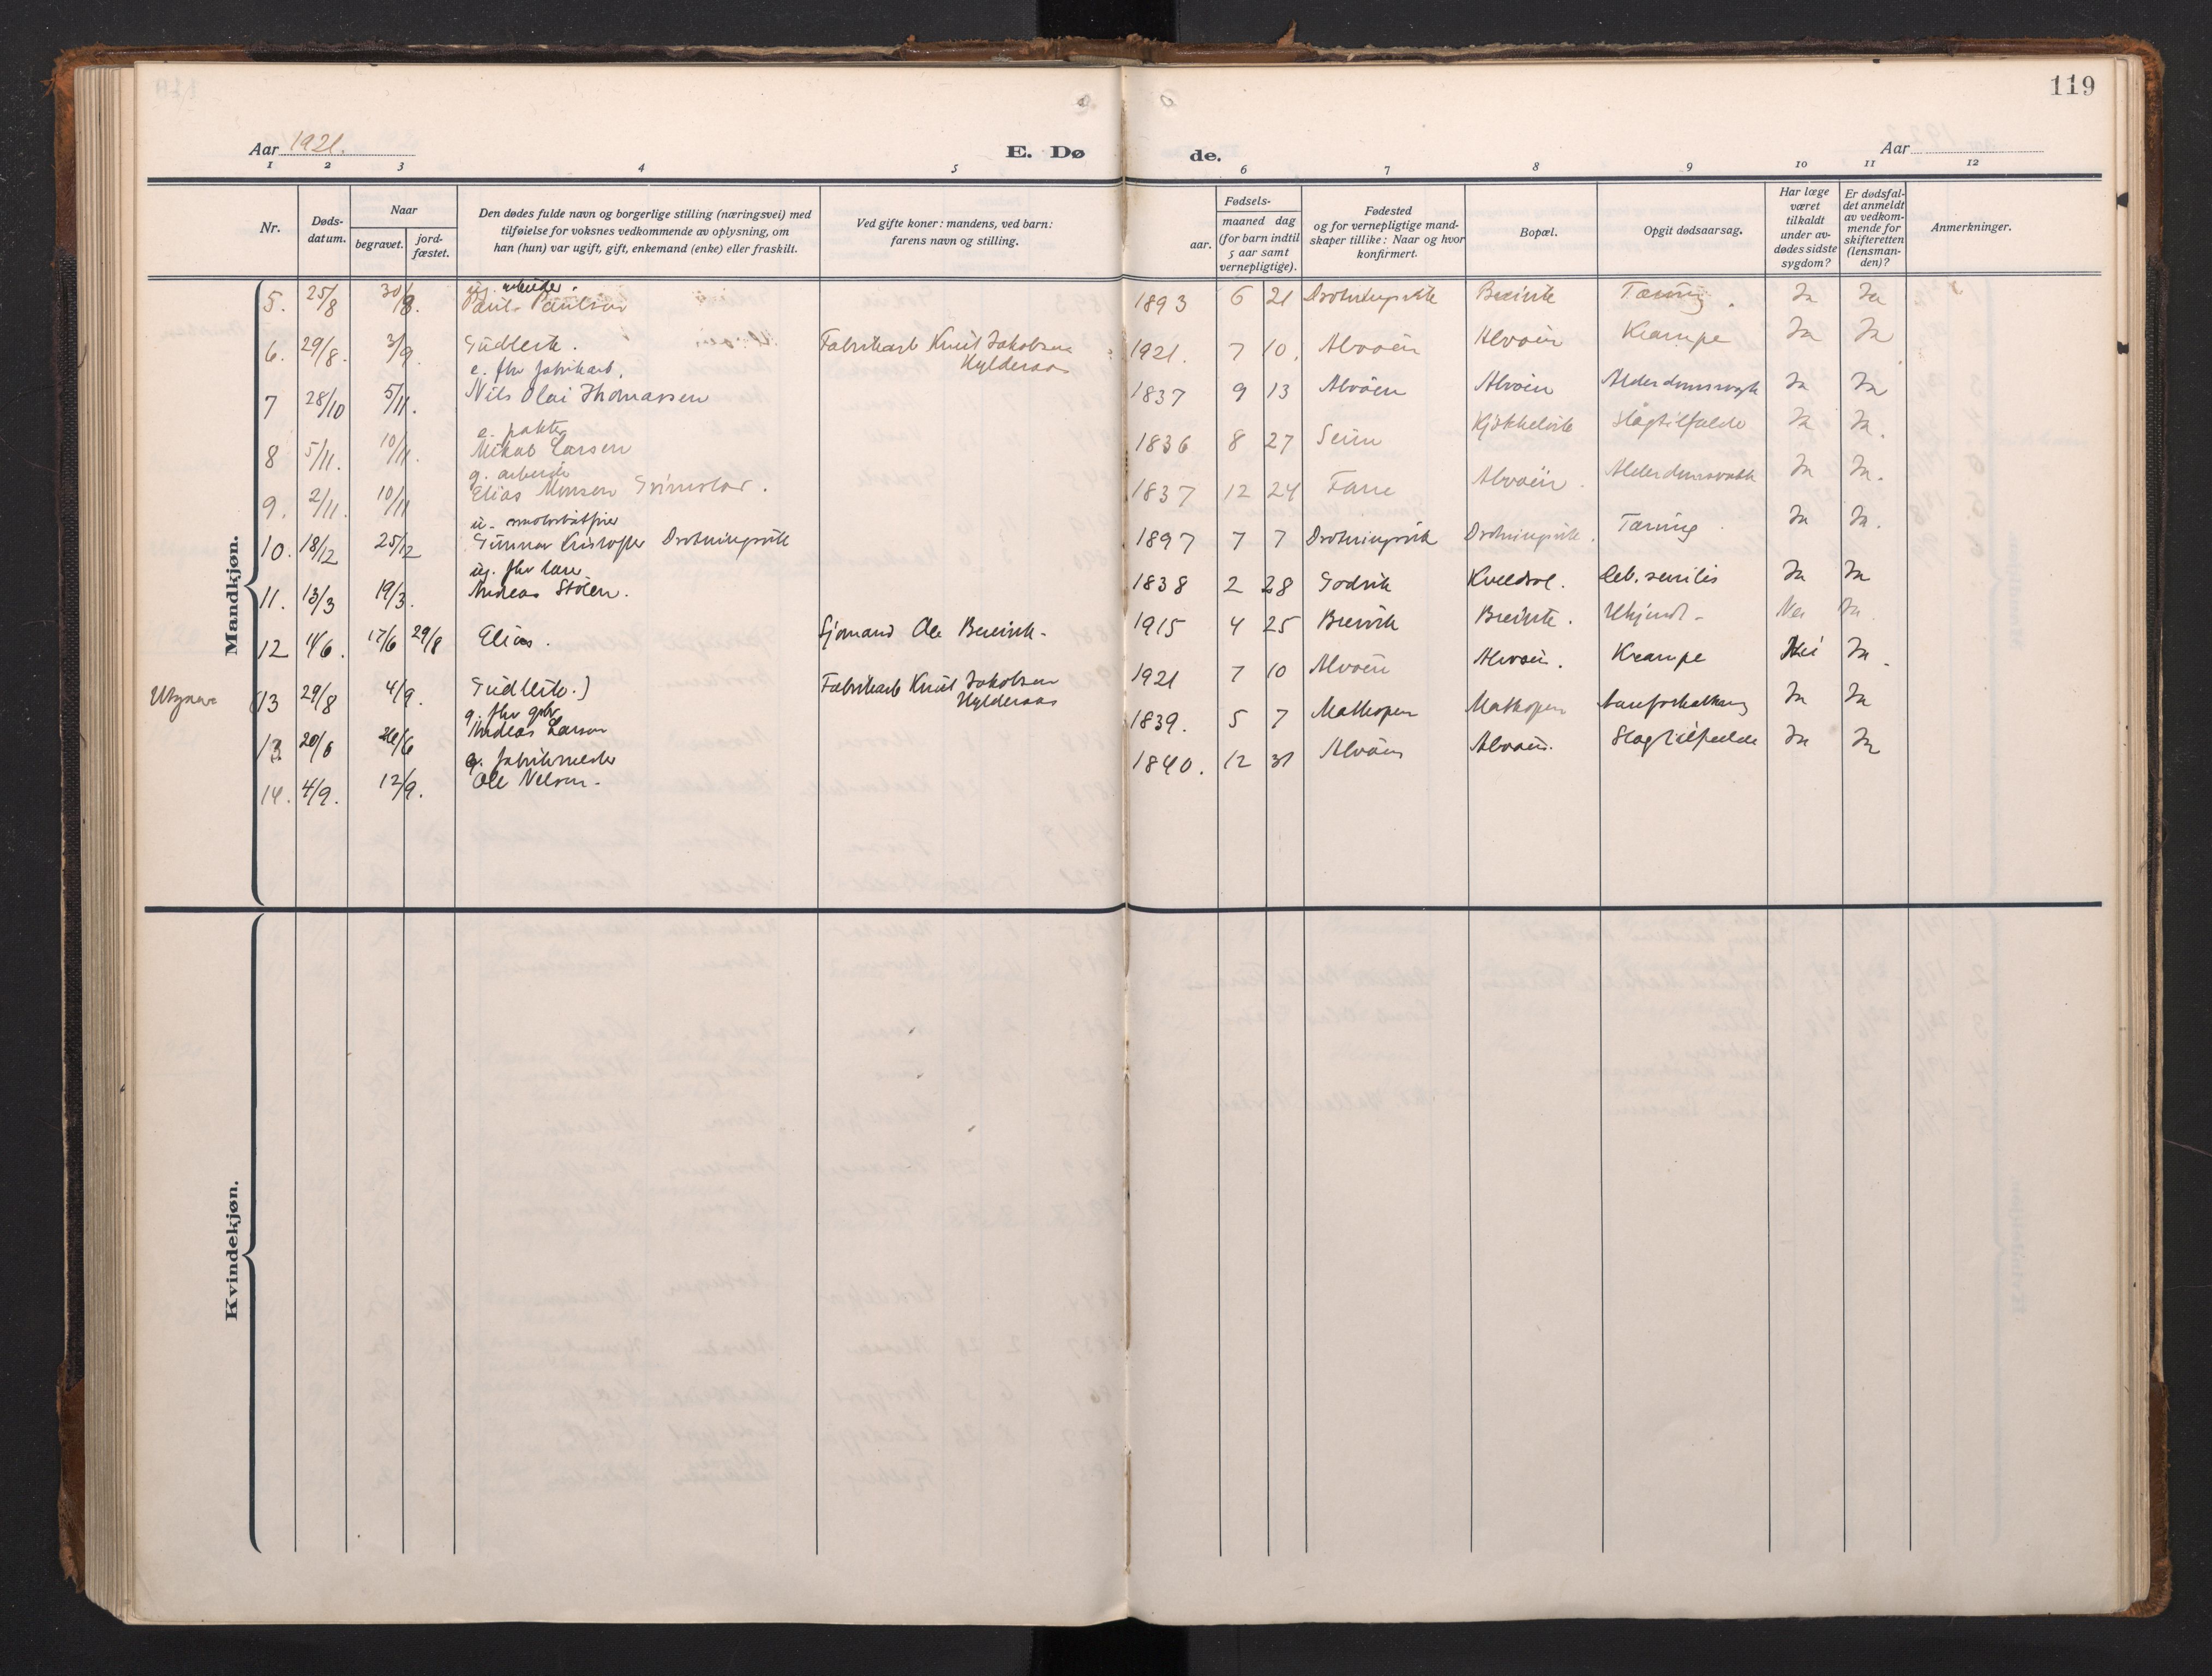 119
Aar 1921.
E. Dø
de.
Aar
1 2 3 4 5 6 7 8 9 10 11 12
Nr.
Døds-
datum.
Naar
begravet.
jord-
fæstet.
Den dødes fulde navn og borgerlige stilling (næringsvei) med
tilføielse for voksnes vedkommende av oplysning, om
han (hun) var ugift, gift, enkemand (enke) eller fraskilt.
Ved gifte koner: mandens, ved barn:
farens navn og stilling.
Fødsels-
aar.
maaned dag
(for barn indtil
5 aar samt
vernepligtige).
Fødested
og for vernepligtige mand-
skaper tillike: Naar og hvor
konfirmert.
Bopæl.
Opgit dødsaarsag.
Har læge
været
tilkaldt
under av-
dødes sidste
sygdom?
Er dødsfal-
det anmeldt
av vedkom-
mende for
skifteretten
(lensman-
den)?
Anmerkninger.
Mandkjøn.
ug. arbeider.
5. 25/8 30/8. Paul Paulsen 1893 6 21 Drotningsvik Breivik Tæring. Ja Ja
6. 29/8. 3/9. Gudleik. Fabrikarb Knut Jakobsen
Hylderaas 1921. 7 10. Alvøen Alvøen Krampe Ja Ja
e. fhv fabrikarb.
7 28/10 5/11. Nils Olai Thomassen 1837 9 13 Alvøen Alvøen Alderdomssvagh Ja Ja
e.
8 5/11. 10/11. Mikal Larsen 1836 8 27 Seim Kjøkkelvik Slagtilfælde Ja Ja.
g. arbeider
9. 2/11. 10/11 Elias Monsen Grimstad. 1837 12 24 Fane Alvøen. Alderdomssvakh Ja Ja.
u.
10. 18/12 25/12 Gunnar Kristofer Drotningsvik 1897 7 7 Drotningsvik Drotningsvik. Tæring Ja Ja.
ug. fhv lærer
11. 13/3 19/3. Andreas Støien. 1838 2 28 Godvik Kveldsol. Deb. senilis Ja Ja
12 14/6. 17/6 29/8 Elias. Sjømand Ole Breivik. 1915 4 25 Breivik Breivik. Ukjendt. Nei Ja.
Utgaar (13 29/8 4/9. Gudleik.) Fabrikarb Knut Jakobsen
Hylderaas 1921 7 10 Alvøen Alvøen. Krampe Nei Ja.
g. fhv gbr
13. 20/6 26/6 Andreas Larsen 1839. 5 7 Mathopen Mathopen Aareforkalkning Ja Ja
g. fabrikmester
14. 4/9. 12/9. Ole Nilsen. 1840. 12 31 Alvøen Alvøen. Slagtilfælde Ja Ja
Kvindekjøn.